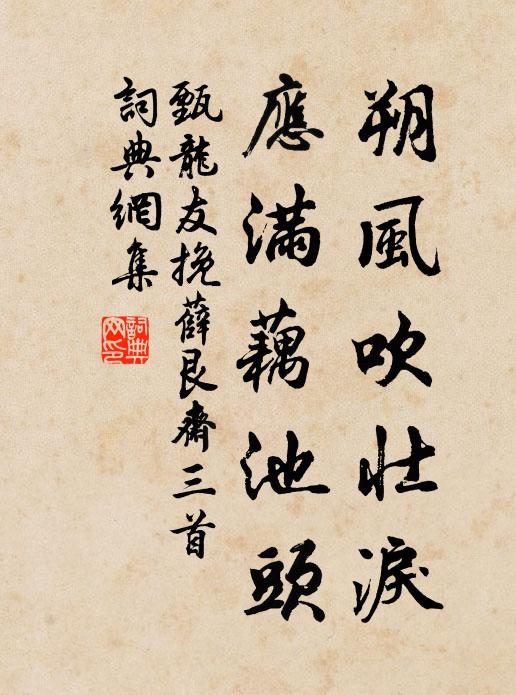 朔風吹壯淚
應滿藕池頭
甄龍友挽薛艮齋三首
詞典網集
詞典网印